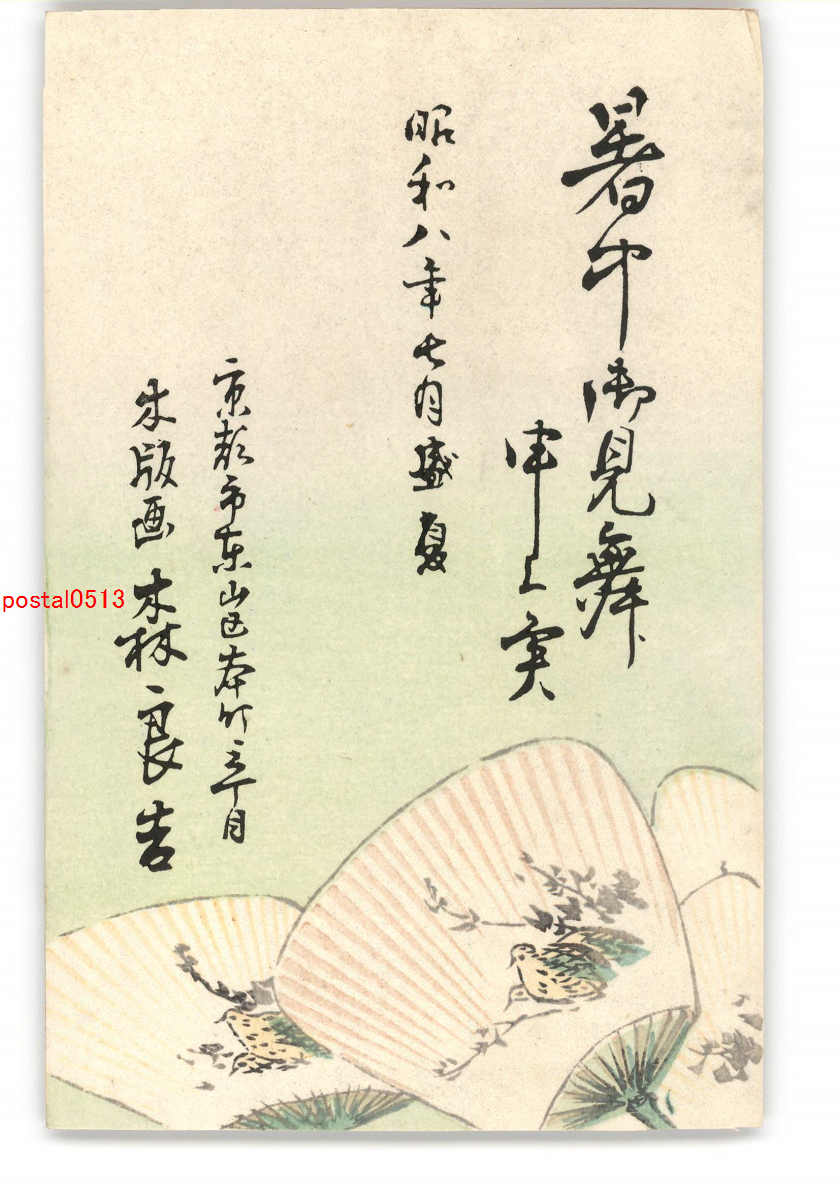 暑中御見舞
申上
昭和八年七月盛夏
京都市東山区本町三丁目
木版画 森良吉
postal0513